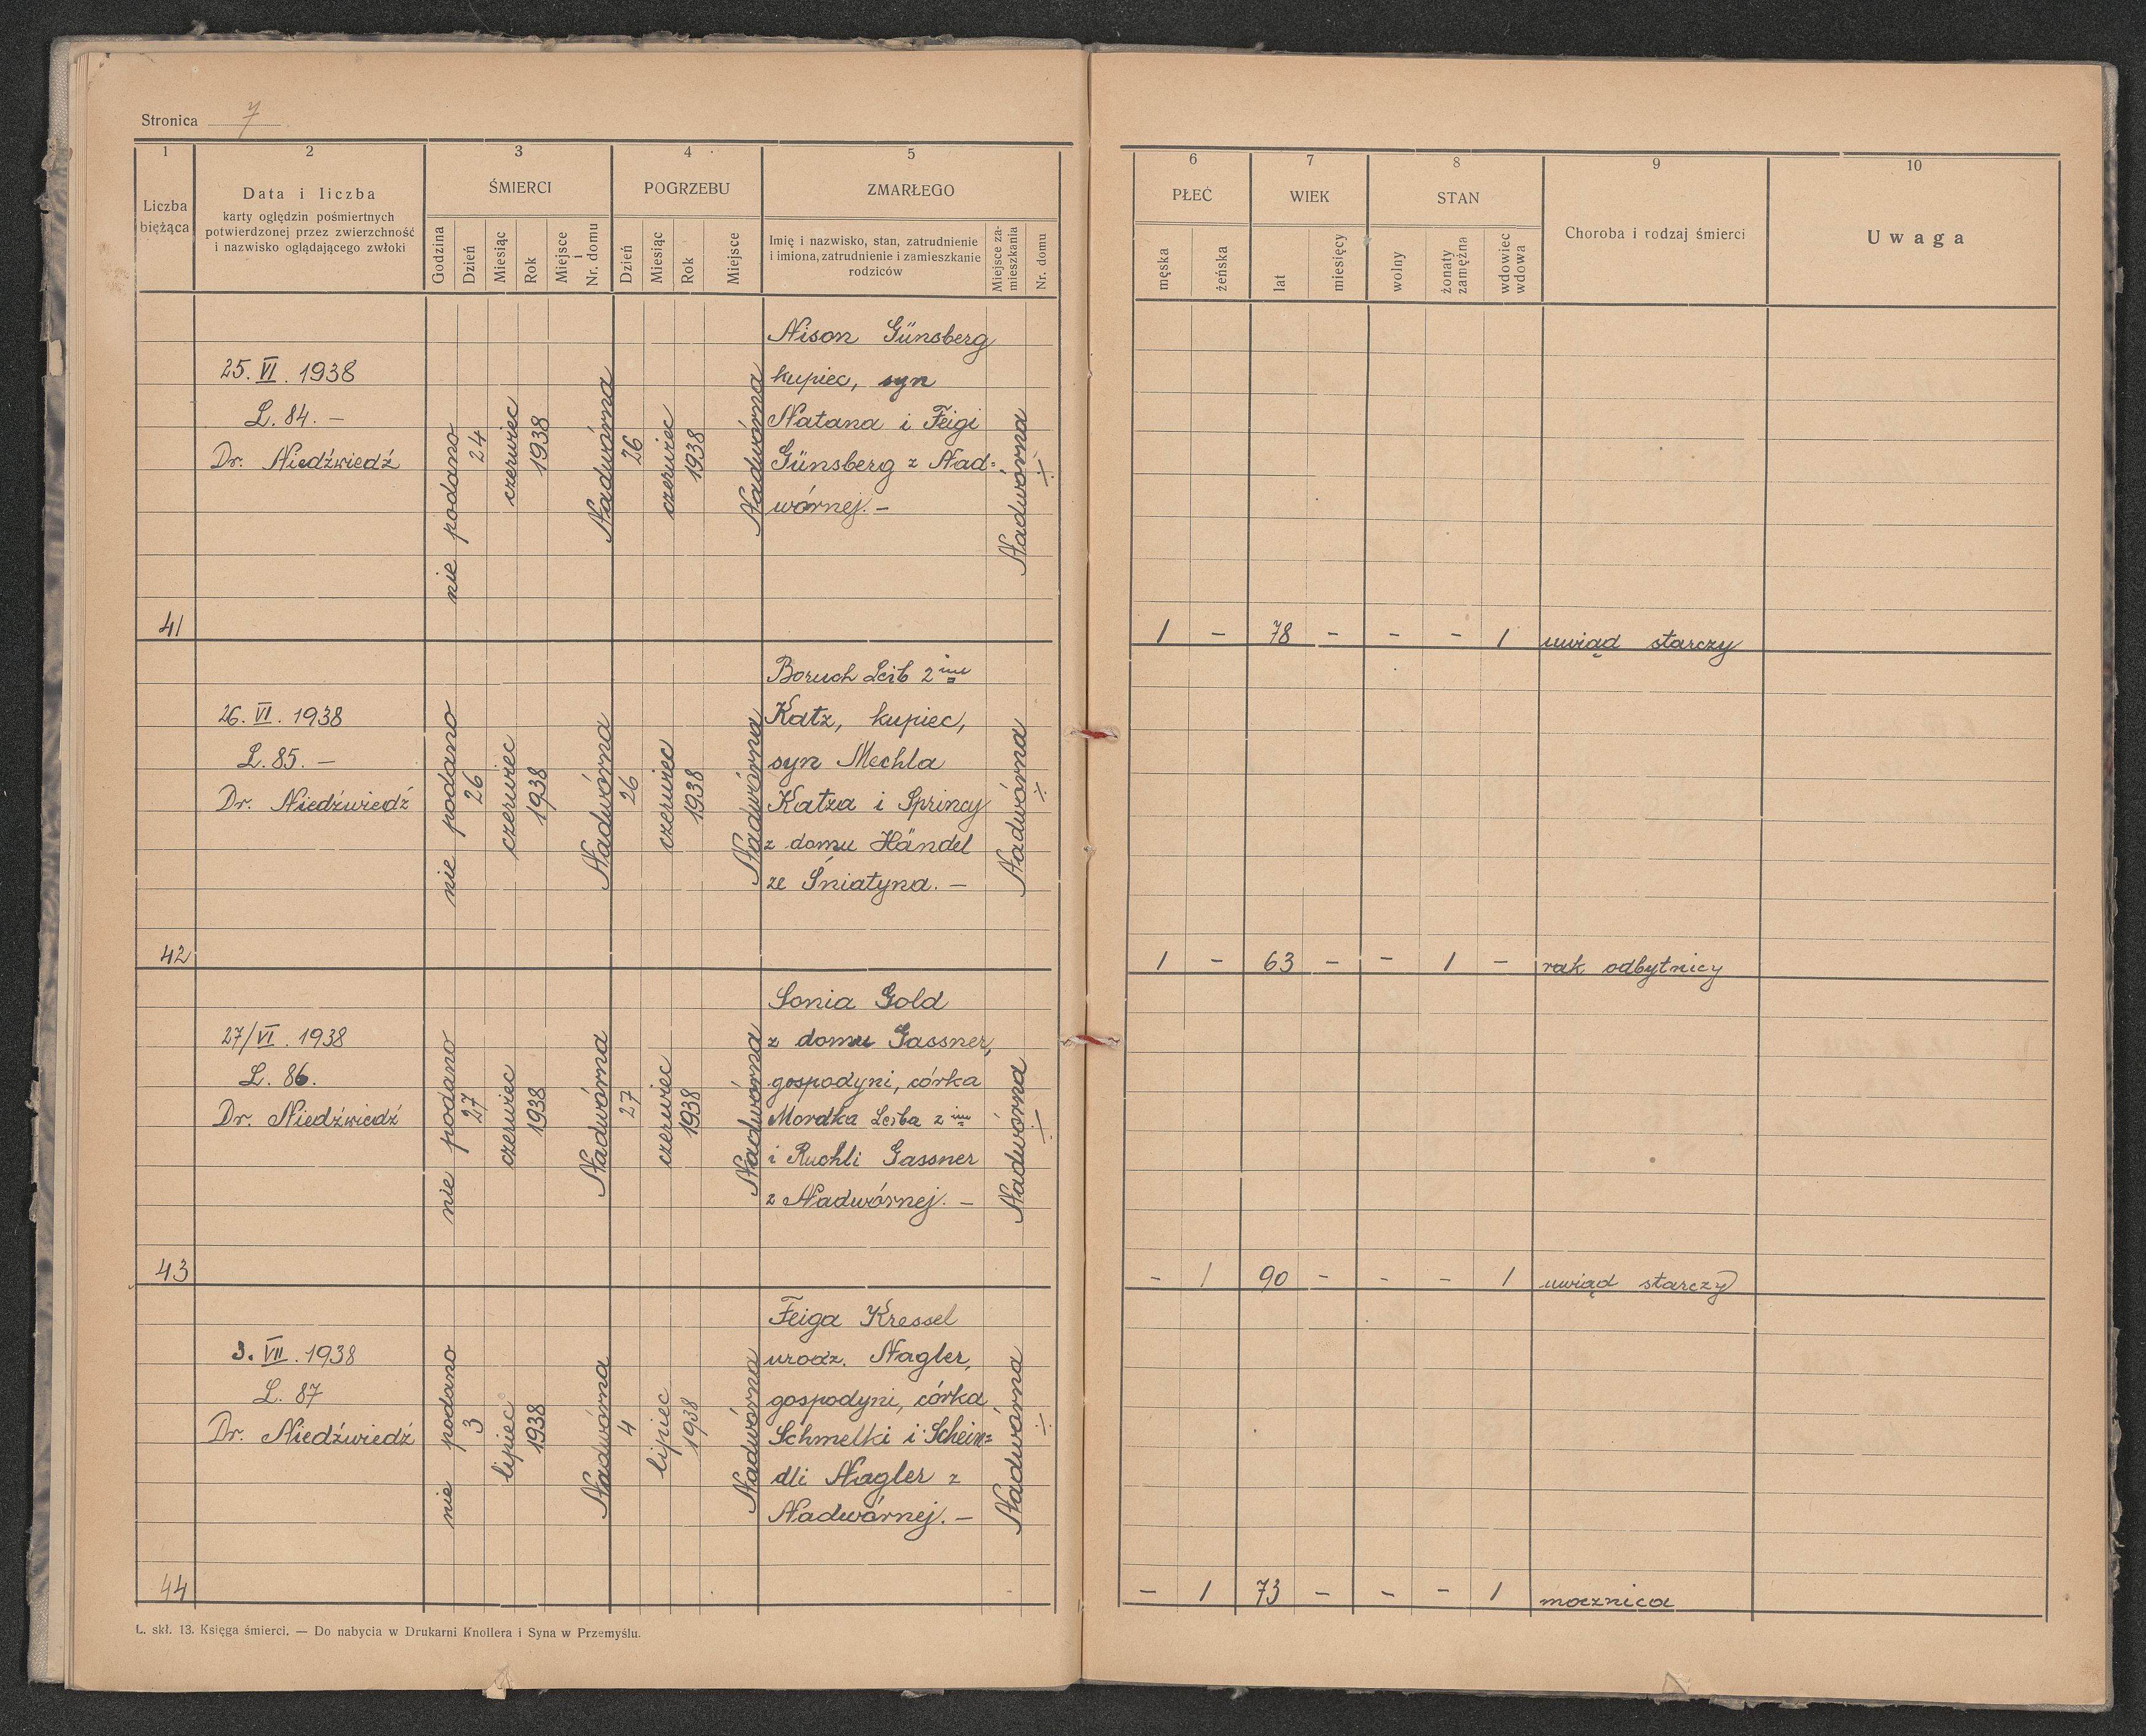 Stronica 7
1 2 3 4 5 6 7 8 9 10
Liczba bieżąca
Data i liczba
karty oględzin pośmiertnych
potwierdzonej przez zwierzchność
i nazwisko oglądającego zwłoki
ŚMIERCI
Godzina
Dzień
Miesiąc
Rok
Miejsce i Nr. domu
POGRZEBU
Dzień
Miesiąc
Rok
Miejsce
ZMARŁEGO
Imię i nazwisko, stan, zatrudnienie
i imiona, zatrudnienie i zamieszkanie
rodziców
Miejsce za-
mieszkania
Nr. domu
PŁEĆ
męska
żeńska
WIEK
lat
miesięcy
STAN
wolny
żonaty
zamężna
wdowiec
wdowa
Choroba i rodzaj śmierci
Uwaga
41
25. VI. 1938
L. 84. —
Dr. Niedźwiedź
nie podano
24
czerwiec
1938
Nadwórna
26
czerwiec
1938
Nadwórna
Nison Günsberg
kupiec, syn
Natana i Feigi
Günsberg z Nad=
wórnej. —
Nadwórna
÷
1 - 78 - - - 1 uwiąd starczy
42
26. VI. 1938
L. 85. —
Dr. Niedźwiedź
nie podano
26
czerwiec
1938
Nadwórna
26
czerwiec
1938
Nadwórna
Boruch Leib 2 im
Katz, kupiec,
syn Mechla
Katza i Sprincy
z domu Händel
ze Śniatyna. —
Nadwórna
÷
1 - 63 - - 1 - rak odbytnicy
43
27/VI. 1938
L. 86.
Dr. Niedźwiedź
nie podano
27
czerwiec
1938
Nadwórna
27
czerwiec
1938
Nadwórna
Sonia Gold
z domu Gassner,
gospodyni, córka
Mordka Leiba 2 im
i Ruchli Gassner
z Nadwórnej. —
Nadwórna
÷
- 1 90 - - - 1 uwiąd starczy
44
3. VII. 1938
L. 87
Dr. Niedźwiedź
nie podano
3
lipiec
1938
Nadwórna
4
lipiec
1938
Nadwórna
Feiga Kressel
urodz. Nagler,
gospodyni, córka
Schmelki i Schein=
dli Nagler z
Nadwórnej. —
Nadwórna
÷
- 1 73 - - - 1 mocznica
L. skł. 13. Księga śmierci. — Do nabycia w Drukarni Knollera i Syna w Przemyślu.